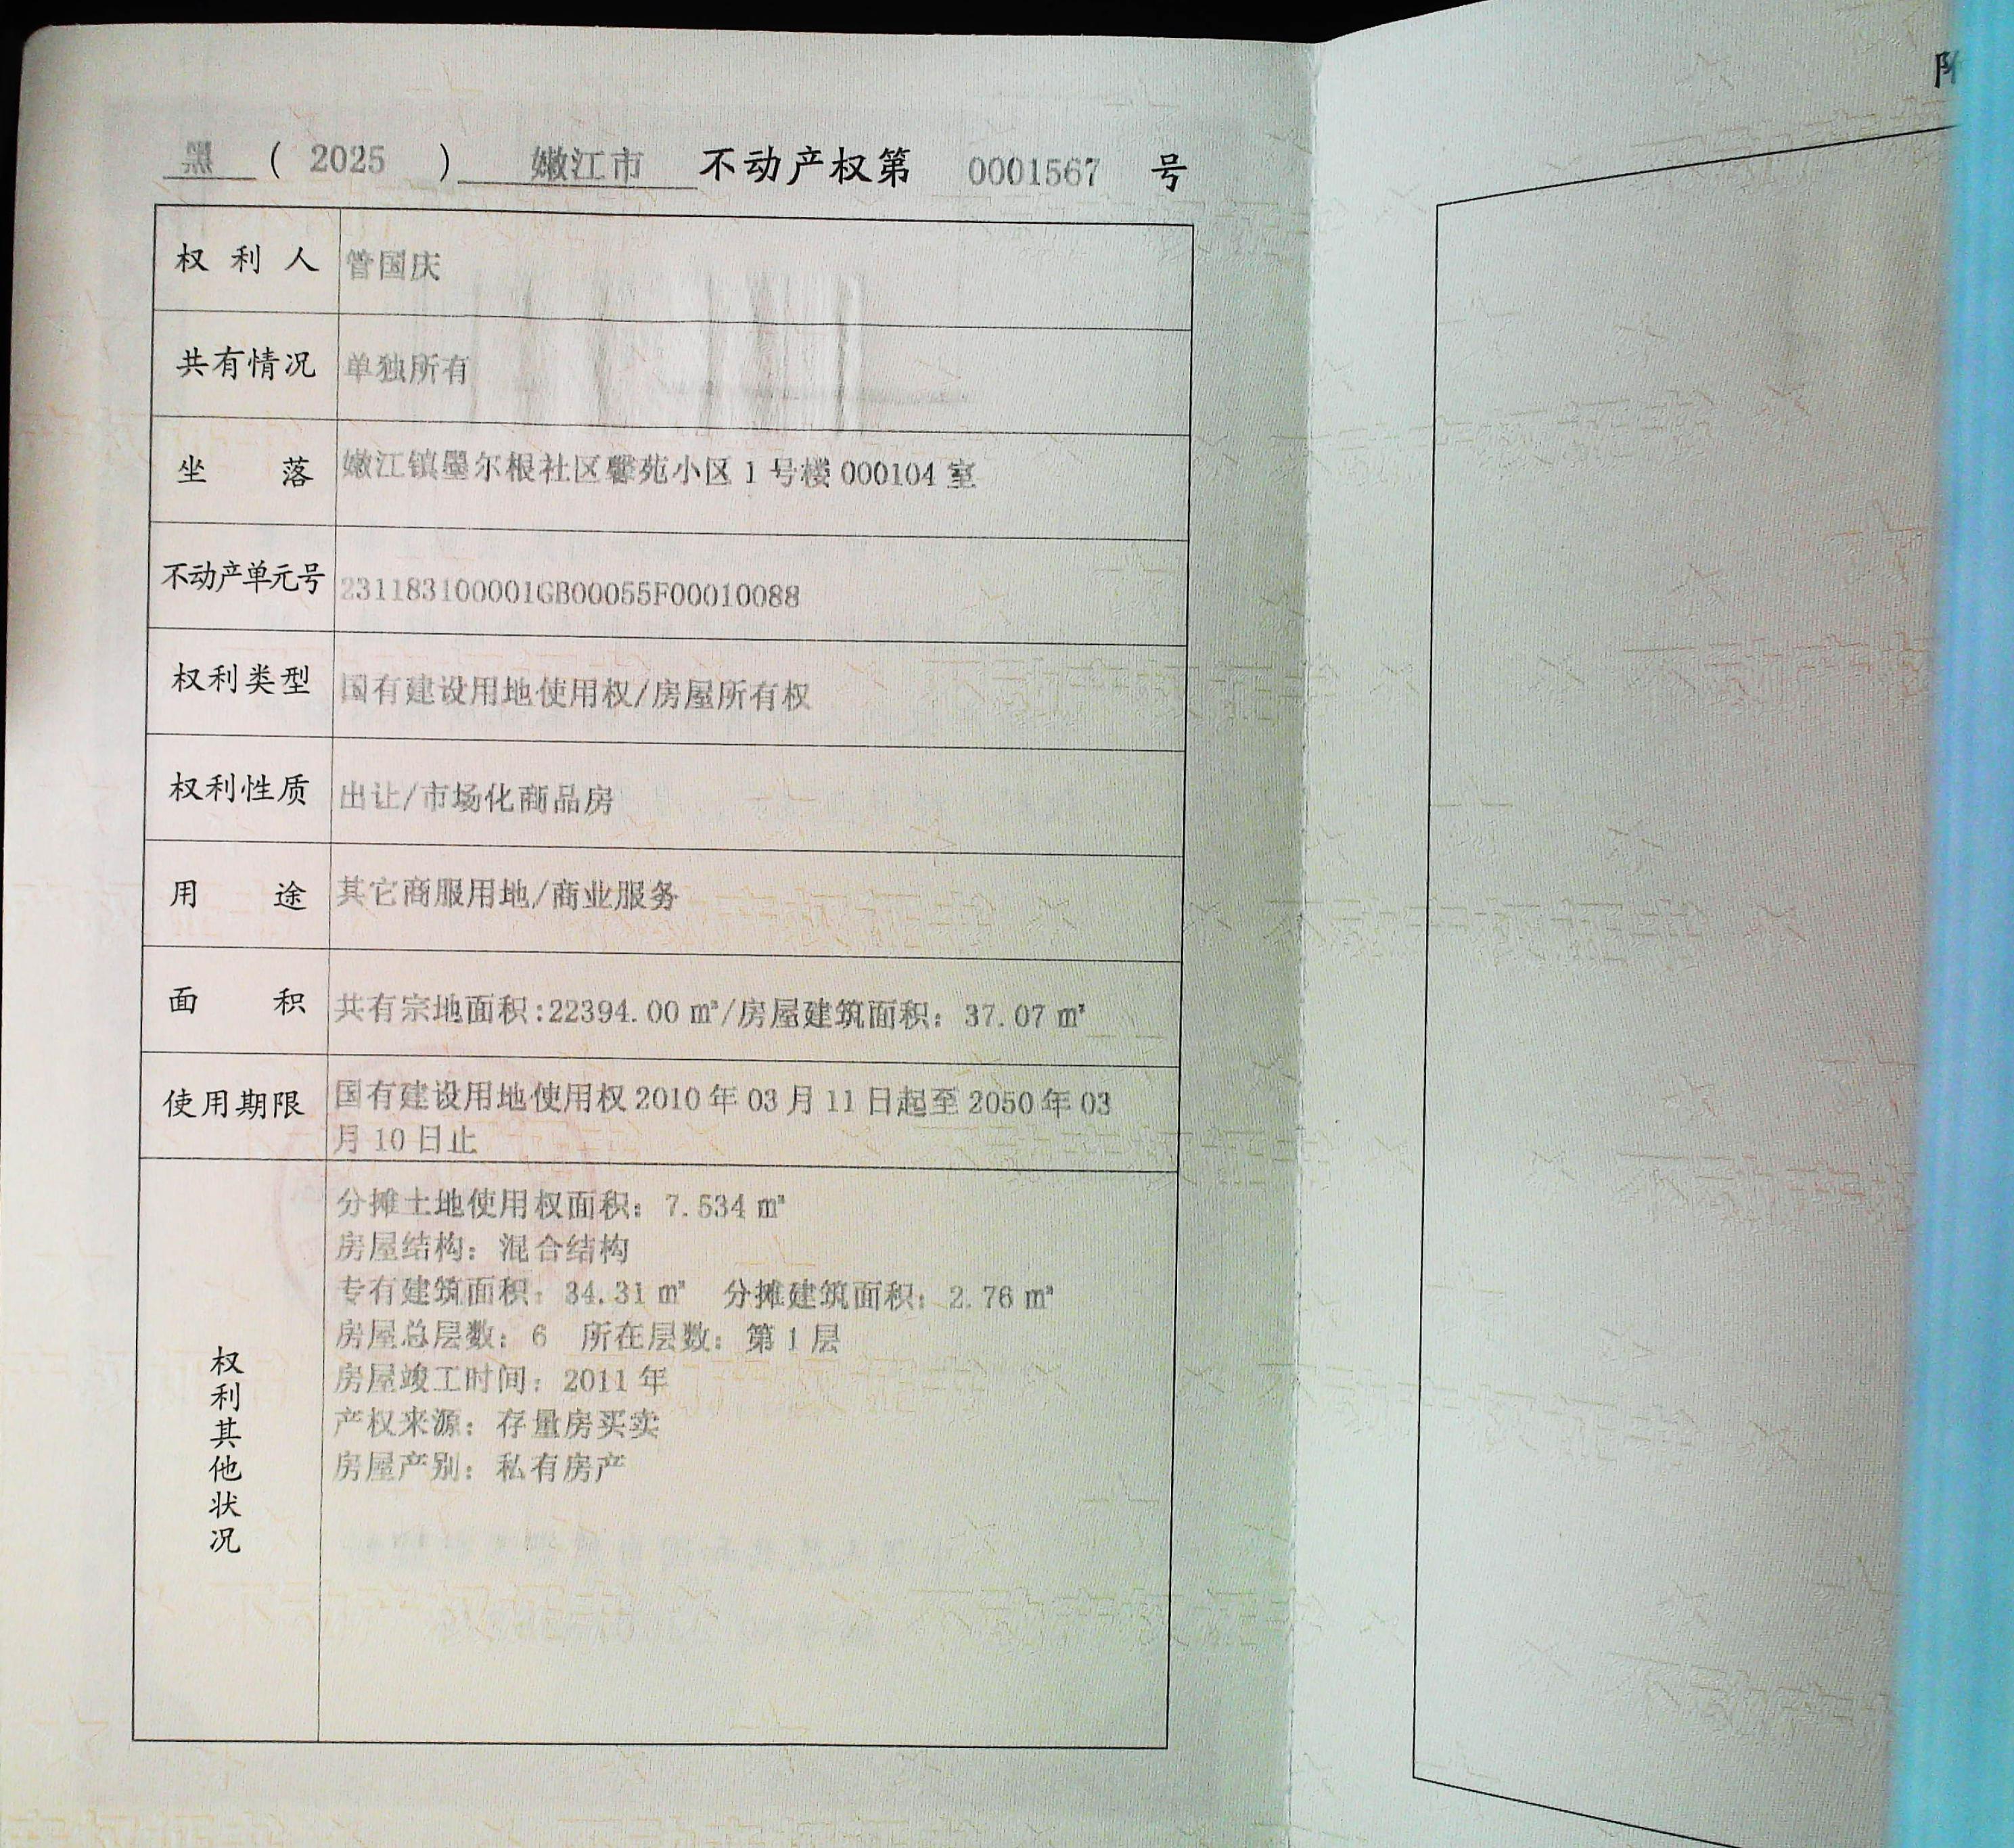 黑 ( 2025 ) 嫩江市 不动产权第 0001567 号
权利人 管国庆
共有情况 单独所有
坐落 嫩江镇墨尔根社区馨苑小区 1 号楼 000104 室
不动产单元号 231183100001GB00055F00010088
权利类型 国有建设用地使用权/房屋所有权
权利性质 出让/市场化商品房
用途 其它商服用地/商业服务
面积 共有宗地面积:22394.00 ㎡/房屋建筑面积: 37.07 ㎡
使用期限 国有建设用地使用权 2010 年 03 月 11 日起至 2050 年 03
月 10 日止
权利其他状况
分摊土地使用权面积: 7.534 ㎡
房屋结构: 混合结构
专有建筑面积: 34.31 ㎡ 分摊建筑面积: 2.76 ㎡
房屋总层数: 6 所在层数: 第 1 层
房屋竣工时间: 2011 年
产权来源: 存量房买卖
房屋产别: 私有房产